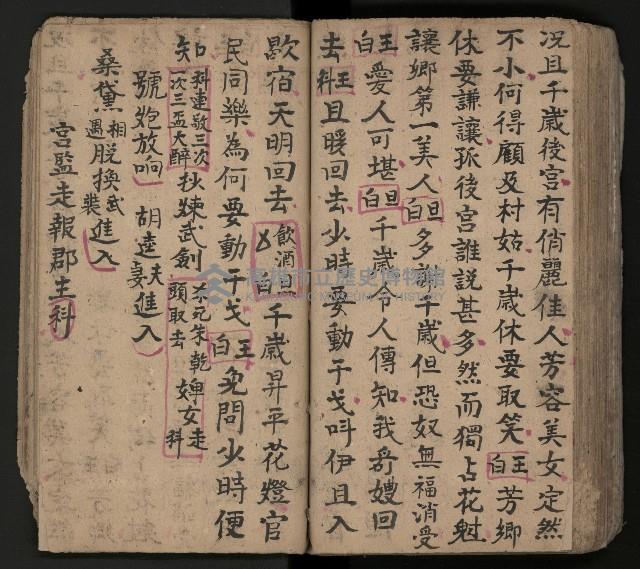 况且千歲後宮有俏麗佳人芳容美女定然
不小何得顧及村姑千歲休要取笑王白芳卿
休要謙讓孤後宮誰説甚多然而獨占花魁
讓卿第一美人旦白多謝千歲但恐奴無福消受
王白愛人可堪旦白千歲令人傳知我哥嫂回
去王科且暖回去少時要動干戈叫伊且入
歇宿天明回去飲酒旦白千歲昇平花燈官
民同樂為何要動干戈王白免問少時便
知科連敬三次一次三盃大醉秋煉武劍杀死朱乾婢女走頭取去科
號炮放响 胡逵夫妻進入
桑黛相遇脱換武裝進入
宮監走報郡主科
高雄市立歷史博物館
KAOHSIUNG MUSEUM OF HISTORY